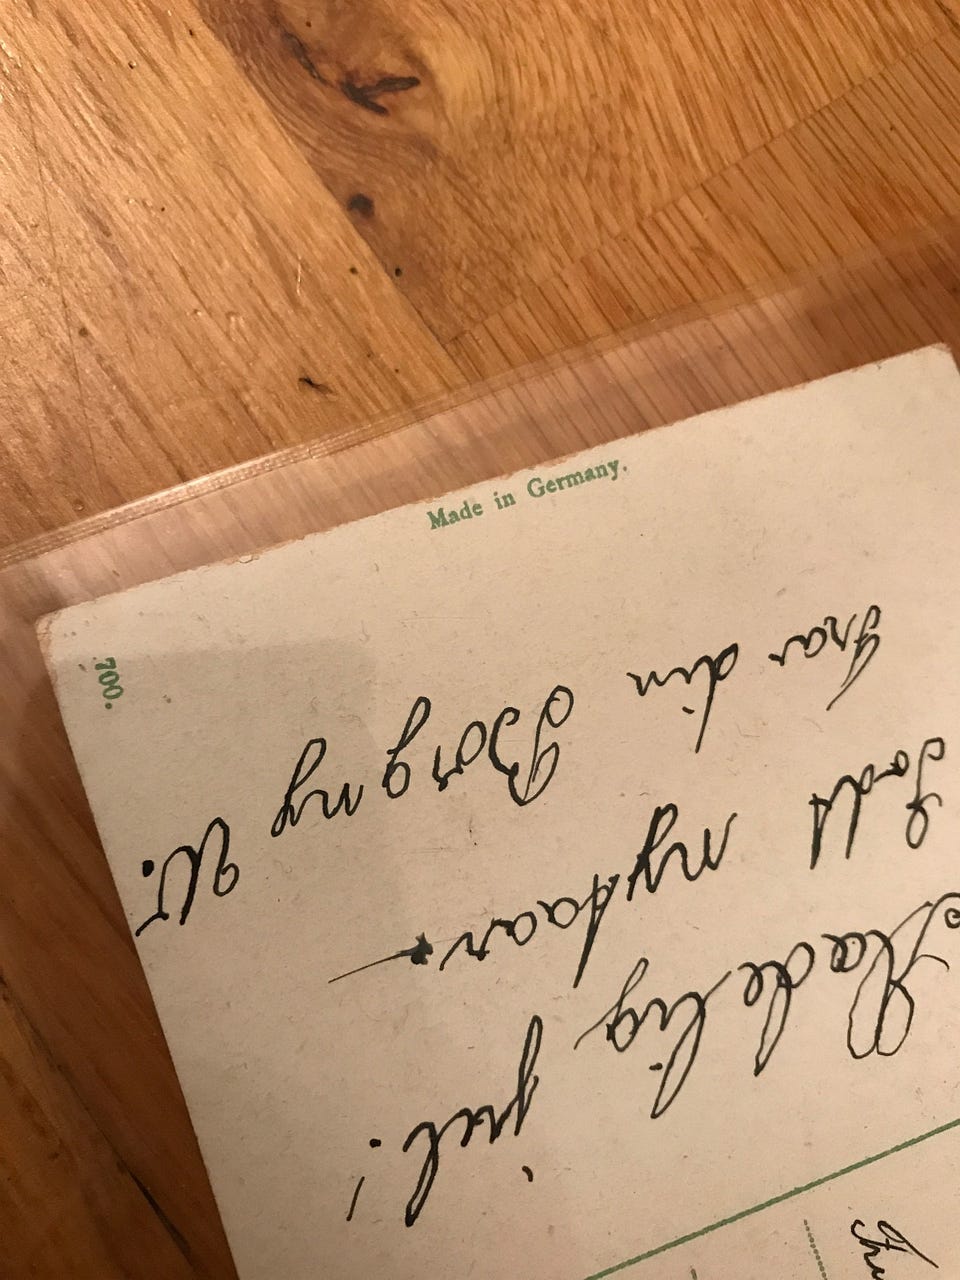 Made in Germany.
700.
Glædelig jul!
Godt nytaar.
Fra din Borgny W.
Frø